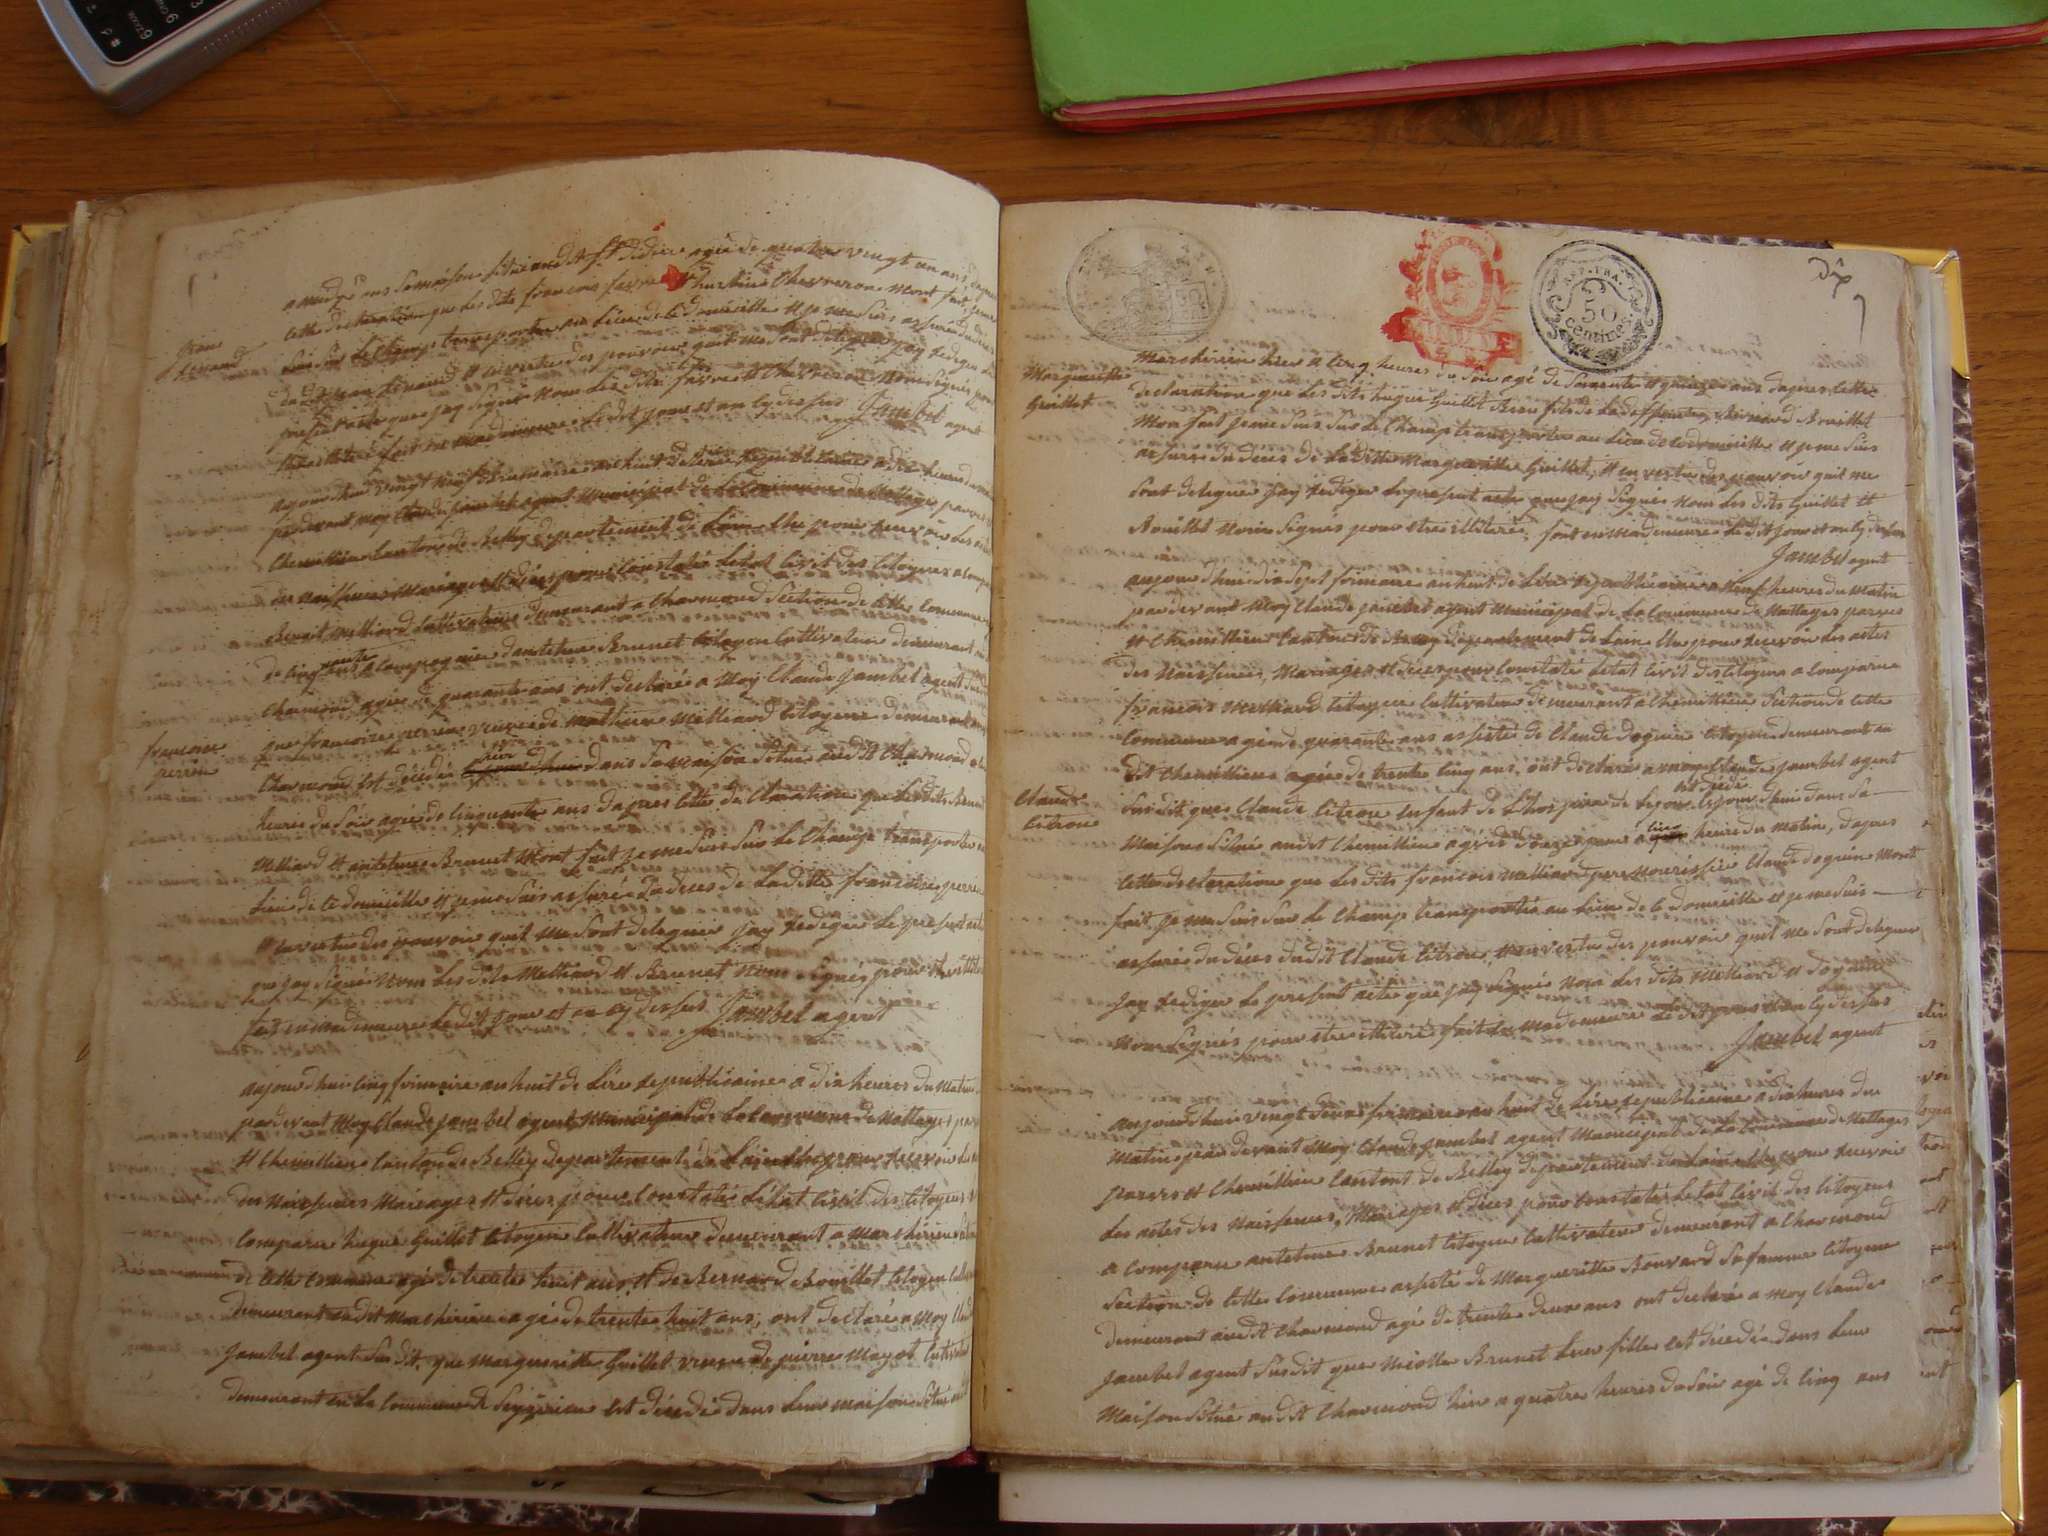 a midy dans sa maison situé audit St didier agée de quatre vingt un ans, dapres
cette declaration que les dits francois favre Chevreron mont fait, je me
suis sur le Champ transporter au Lieu de le domicille et je me suis assuré du deces
et en vertu des pouvoir quil me sont deleguer jay rediger le
present acte que jay signé Non les dits favre et Chevreron Non signés pour
fait en ma demeure le dit jour et an cy dessus Jambel agent
aujourdhui vingt neuf Brumaire an huit de Lére republicaine a dix heures du matin
par devant moy Claude jambel agent Municipal de la Commune de Nattages parves et
Chemillieu Canton de Belley departement de Lain Elu pour recevoir les actes
des naissences Mariages et déces pour Constaté Letat Civil des Citoyens a comparu
Benoit Milliard Cultivateur demeurant a Charmond Section de cette Commune agé
de cinquante ans a Compagnie dantelme Brunet Citoyen Cultivateur demeurant audit
Charmond agée de quarante ans ont declaré a Moy Claude Jambel agent susdit
francoise
perrin
que francoise perrin veuve de mathieu Milliard Citoyen demeurant audit
Charmond est décédée hier dans sa maison située audit Charmond a
heures du soir agée de cinquante ans dapres cette declaration que les dits Benoit
Milliard et antelme Brunet mont fait je me suis sur le Champ transporter au
Lieu de le domicille et je me suis assuré du deces de Laditte francoise perrin
et en vertu des pouvoir quil me sont deleguer jay rediger le present acte
que jay signé Non les dits Milliard et Brunet Non signés pour etre illiteré
fait en ma demeure le dit jour et an cy dessus Jambel agent
aujourdhui cinq frimaire an huit de Lére republicaine a dix heures du Matin
par devant Moy Claude jambel agent Municipal de la Commune de Nattages parves
et Chemillieu Canton de Belley departement de Lain Elu pour recevoir les actes
des Naissences Mariages et déces pour Constaté Létat Civil des Citoyens a
Comparu hugue Guillet Citoyen Cultivateur demeurant a Marchirieu section
de cette Commune agé de trente huit ans et de Bernard Bouillet Citoyen Cultivateur
demeurant audit Marchirieu agé de trente huit ans, ont declaré a Moy Claude
Jambel agent susdit, que Marguerite Guillet veuve de pierre Mayot Cultivateur
demeurant en la Commune de est décédée dans leur maison située audit
REP. FRA.
50
centimes
dix
7
Marguerite
Guillet
Marchirieu hier a cinq heures du soir agé de soixante et quinze ans dapres cette
declaration que les dits hugue Guillet Beau fils de la deffunte, Bernard Bouillet
Mon fait je me suis sur le Champ transporter au Lieu de le domicille et je me suis
assuré du deces de La ditte Marguerite Guillet, et en vertu des pouvoir quil me
sont deleguer jay rediger le present acte que jay signé Non les dits Guillet et
Bouillet Non signés pour etre illiteré, fait en ma demeure le dit jour et an cy dessus
Jambel agent
aujourdhui dix sept frimaire an huit de Lére republicaine a Neuf heures du matin
par devant Moy Claude jambel agent Municipal de la Commune de Nattages parves
et Chemillieu Canton de Belley departement de Lain Elu pour recevoir les actes
des Naissences, Mariages et déces pour Constaté Letat Civil des Citoyens a Comparu
francois Milliard Citoyen Cultivateur demeurant a Chemillieu Section de cette
Commune agé de quarante ans assisté de Claude doquin Citoyen demeurant au
dit Chemillieu agée de trente cinq ans, ont declaré a moy Claude jambel agent
Claude
Citron
susdit que Claude Citron enfant de Lhospice de Lyon est décédé ce jourdhui dans sa
Maison Située audit Chemillieu agé de douze jours a cinq heure du matin, dapres
cette declaration que les dits francois Milliard pere Nourissié Claude doquin Mont
fait je me suis sur le Champ transporter au Lieu de le Domicille et je me suis
assuré du déces dudit Claude Citron, et en vertu des pouvoir quil me sont deleguer
Jay rediger le present acte que jay signé Non les dits Milliard et doquin
Non signés pour etre illiteré fait en ma demeure le dit jour et an cy dessus
Jambel agent
aujourdhui vingt deux frimaire an huit de Lére republicaine a dix heures du
Matin par devant Moy Claude Jambel agent Municipal de la Commune de Nattages
parves et Chemillieu Canton de Belley departement de Lain Elu pour recevoir
Les actes des Naissences, Mariages et déces pour Constaté Letat Civil des Citoyens
a Comparu antelme Brunet Citoyen Cultivateur demeurant a Charmond
Section de cette Commune assisté de Marguerite Bouvard sa femme Citoyenne
demeurant audit Charmond agé de trente deux ans ont declaré a Moy Claude
Jambel agent susdit que Brunet Leur fille est décédée dans leur
Maison Située audit Charmond hier a quatre heures du soir agé de cinq ans